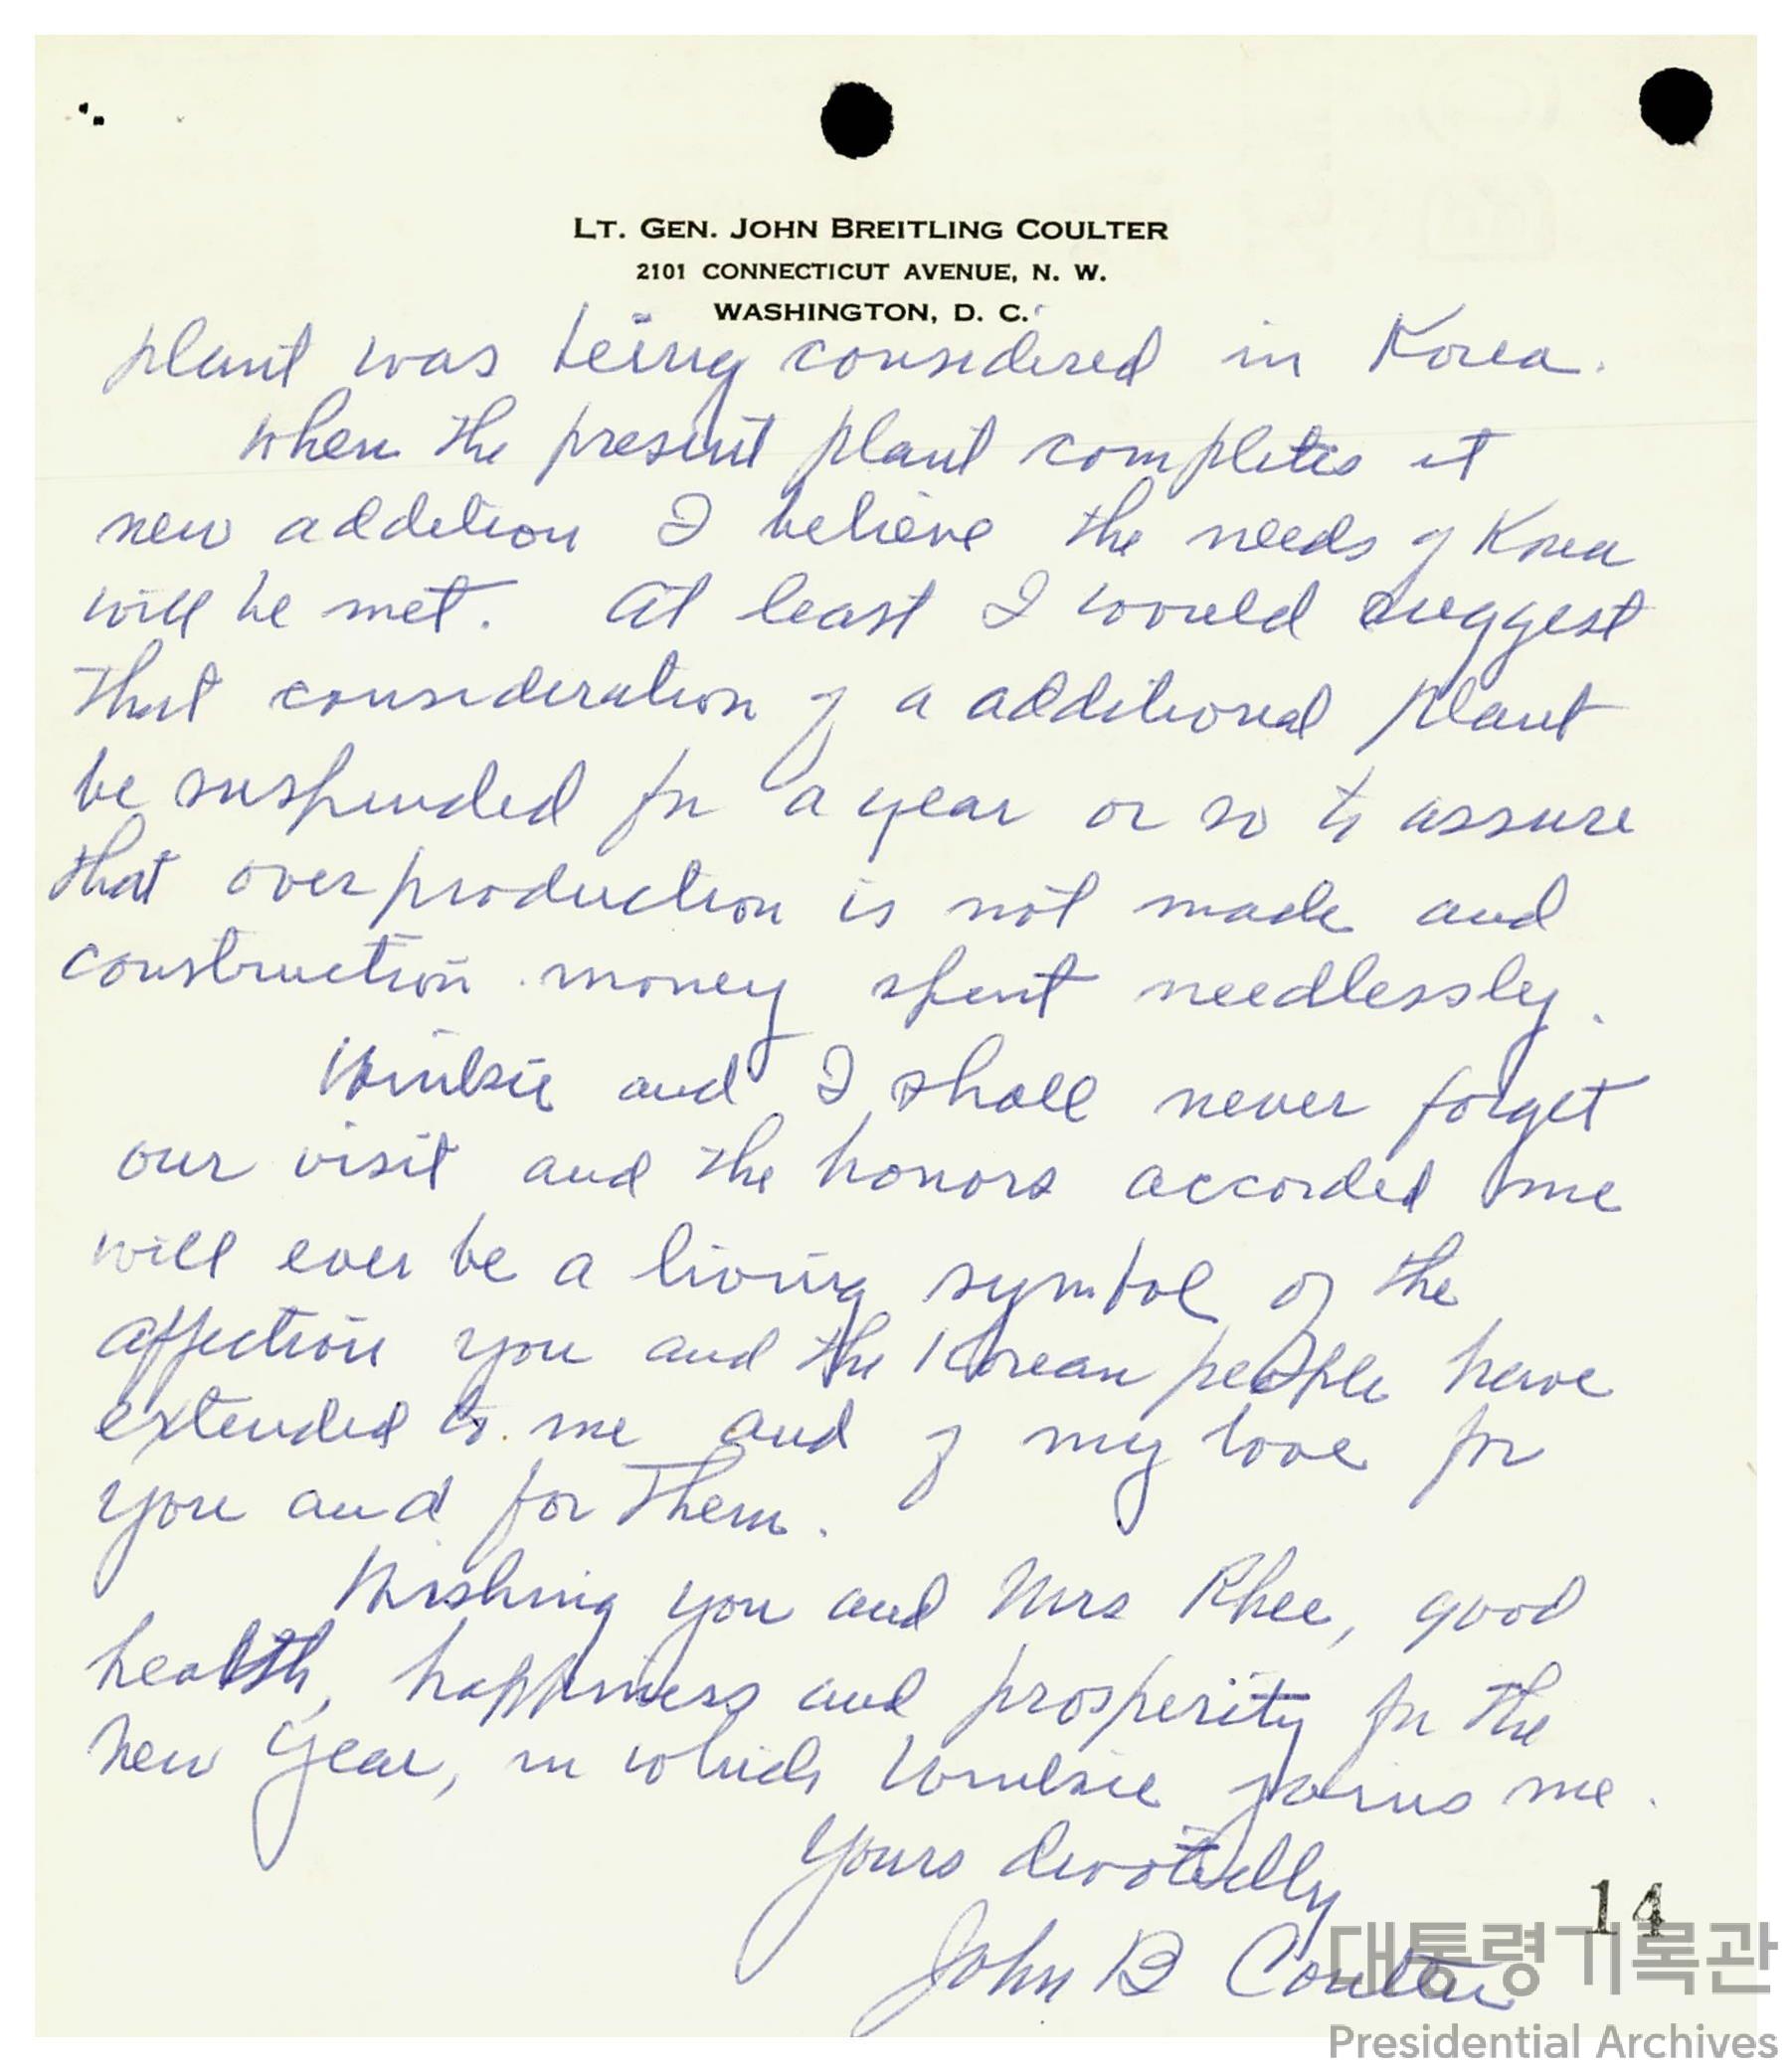 LT. GEN. JOHN BREITLING COULTER
2101 CONNECTICUT AVENUE, N. W.
WASHINGTON, D. C.
plant was being considered in Korea.
When the present plant completes it
new addition I believe the needs of Korea
will be met. At least I would suggest
that consideration of a additional plant
be suspended for a year or so to assure
that over production is not made and
construction money spent needlessly.
and I shall never forget
our visit and the honors accorded me
will ever be a living symbol of the
affection you and the Korean people have
extended to me and of my love for
you and for them.
Wishing you and Mrs Rhee, good
health, happiness and prosperity for the
New Year, in which joins me.
Yours devotedly
John B Coulter
14
대통령기록관
Presidential Archives